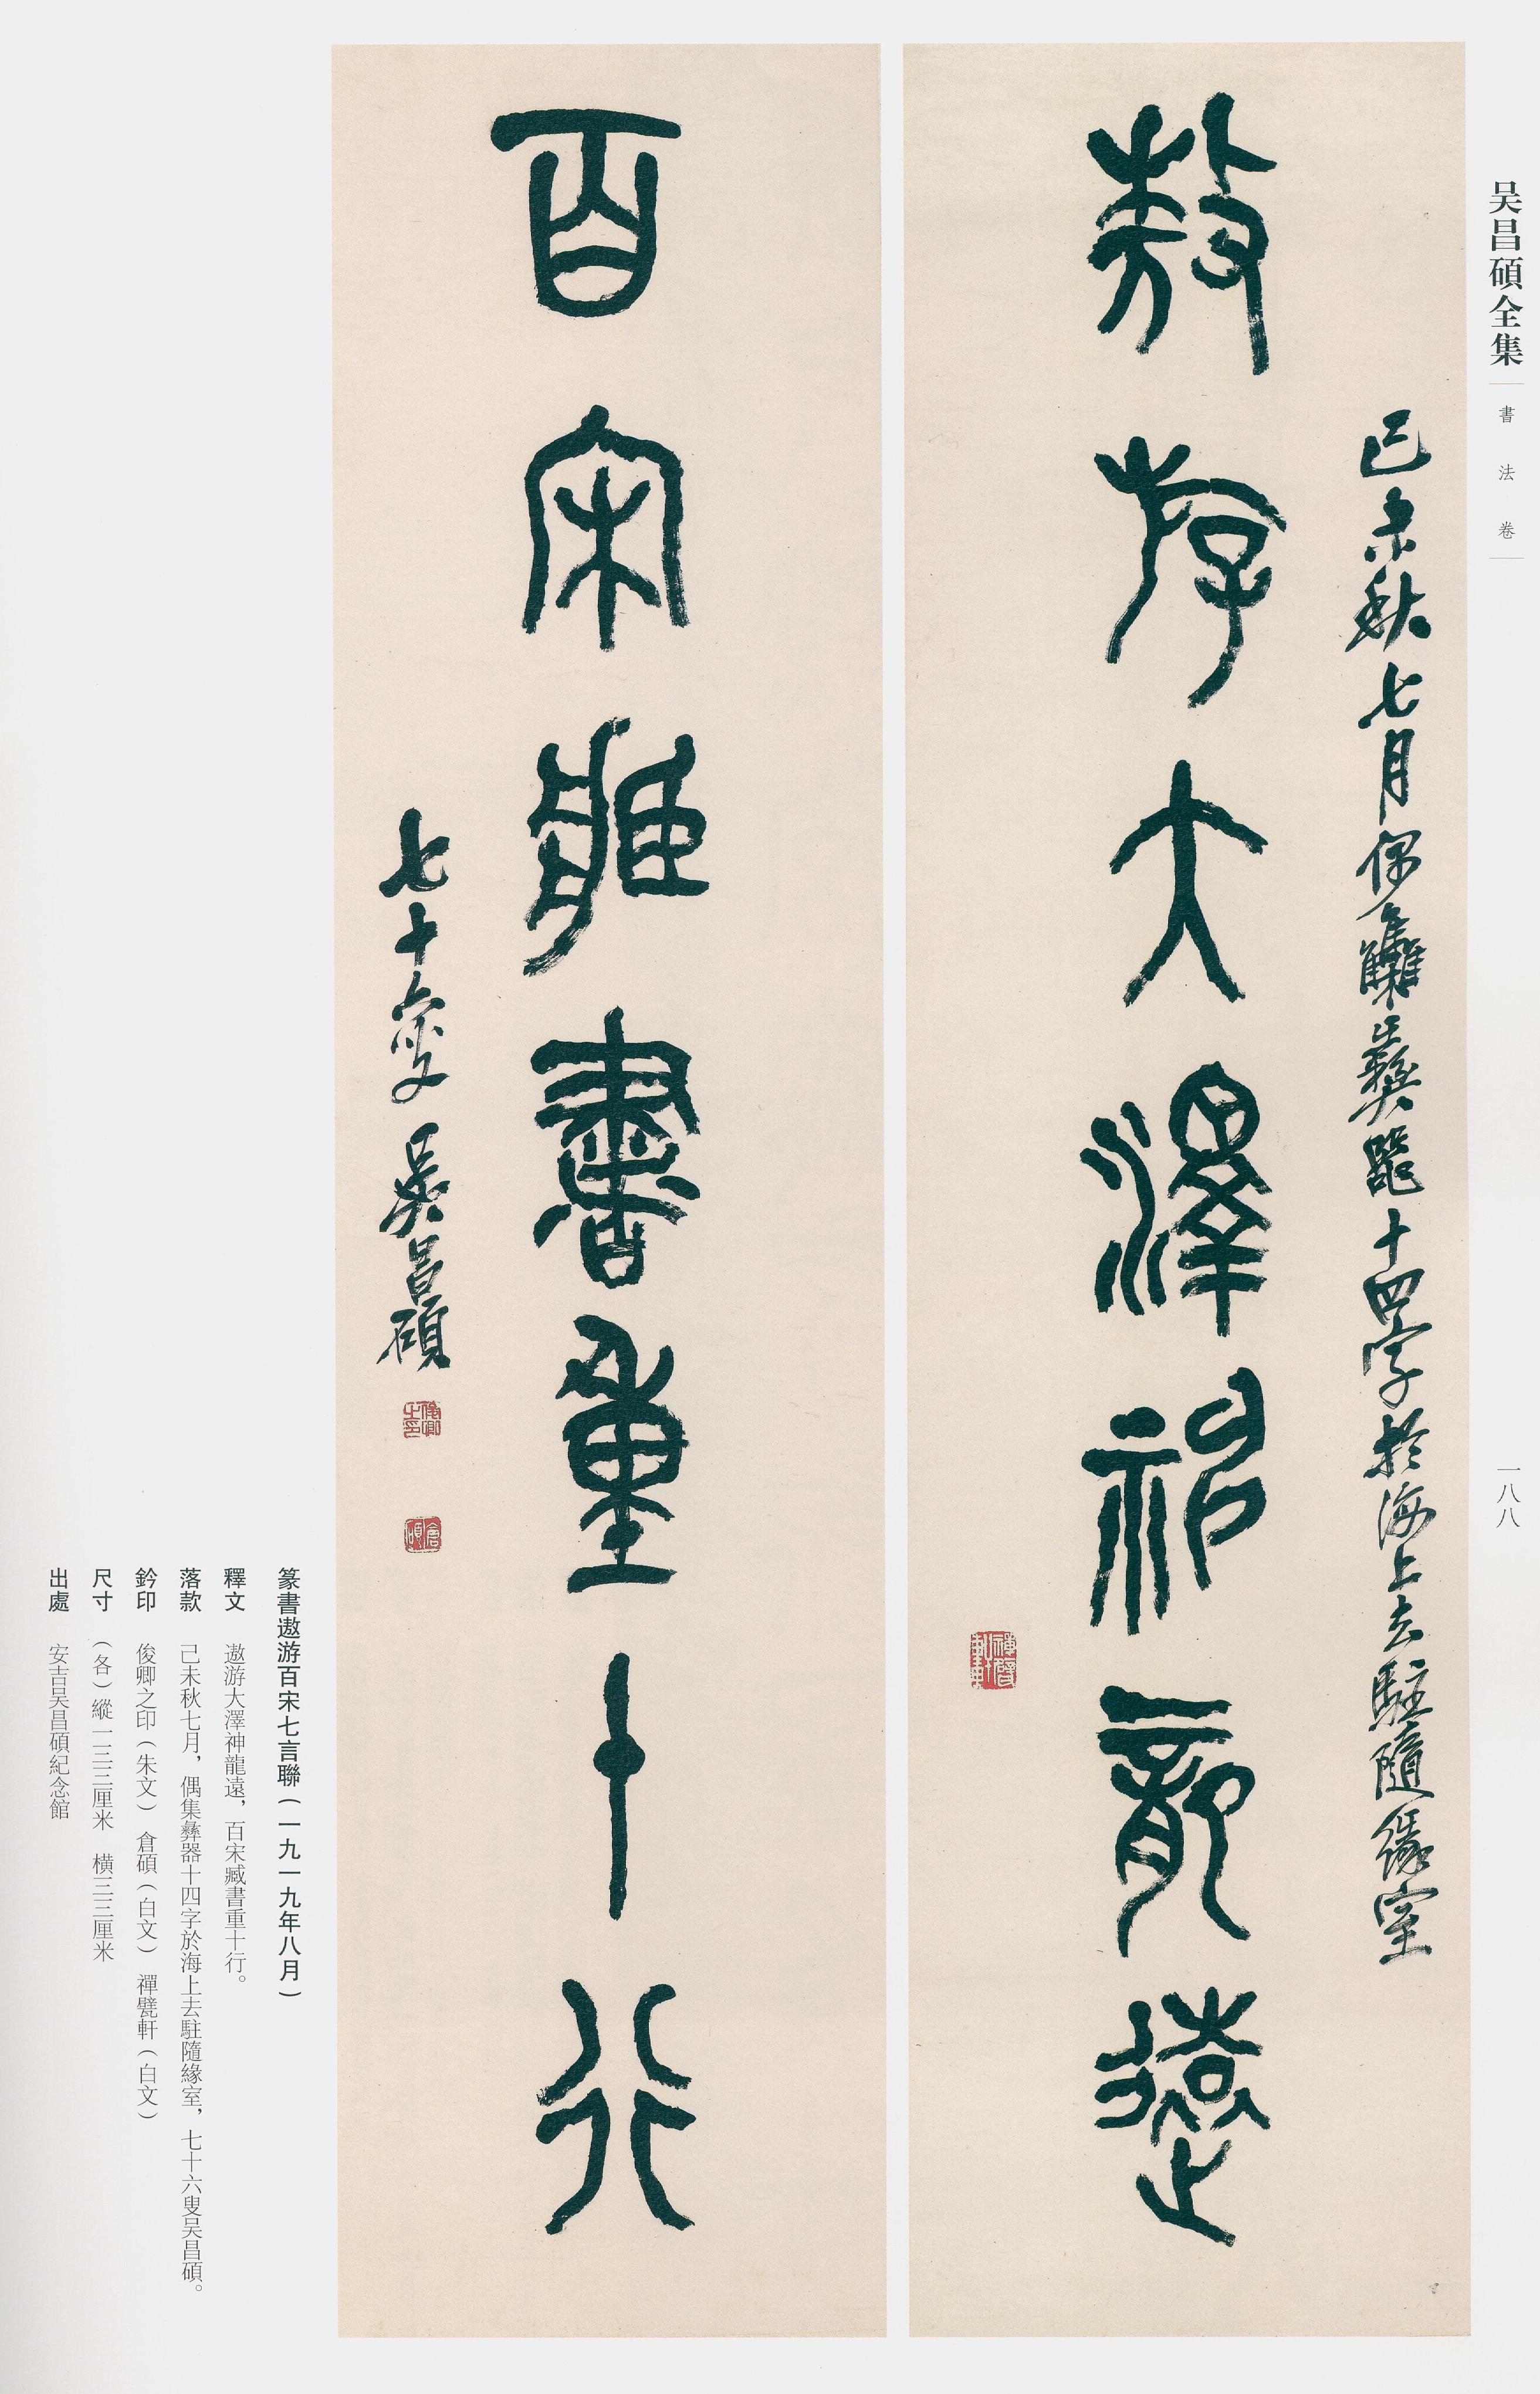 吴昌碩全集
書法卷
一八八
己未秋七月偶集彝器十四字於海上去駐隨緣室
敖斿大澤神龍遠
百宋臧書重十行
七十六叟吴昌碩
俊卿之印
倉碩
禪甓軒
篆書遨游百宋七言聯（一九一九年八月）
釋文　遨游大澤神龍遠，百宋臧書重十行。
落款　己未秋七月，偶集彝器十四字於海上去駐隨緣室，七十六叟吴昌碩。
鈐印　俊卿之印（朱文）　倉碩（白文）　禪甓軒（白文）
尺寸　（各）縱一三三厘米　横三三厘米
出處　安吉吴昌碩紀念館